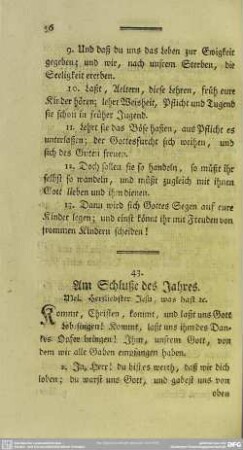 56
9. Und daß du uns das Leben zur Ewigkeit
gegeben; und wir, nach unsrem Sterben, die
Seeligkeit ererben.
10. Laßt, Aeltern, diese Lehren, früh eure
Kinder hören; lehrt Weisheit, Pflicht und Tugend
sie schon in früher Jugend.
11. Lehrt sie das Böse hassen, aus Pflicht es
unterlassen; der Gottesfurcht sich weihen, und
sich des Guten freuen.
12. Doch sollen sie so handeln, so müßt ihr
selbst so wandeln, und müßt zugleich mit ihnen
Gott lieben und ihm dienen.
13. Dann wird sich Gottes Segen auf eure
Kinder legen; und einst könnt ihr mit Freuden von
frommen Kindern scheiden!
43.
Am Schluße des Jahres.
Mel. Herzliebster Jesu, was hast ꝛc.
Kommt, Christen, kommt, und laßt uns Gott
lobsingen! Kommt, laßt uns ihm des Dan-
kes Opfer bringen! Ihm, unsrem Gott, von
dem wir alle Gaben empfangen haben.
2. Ja, Herr! du bist es werth, daß wir dich
loben; du warst uns Gott, und gabest uns von
oben